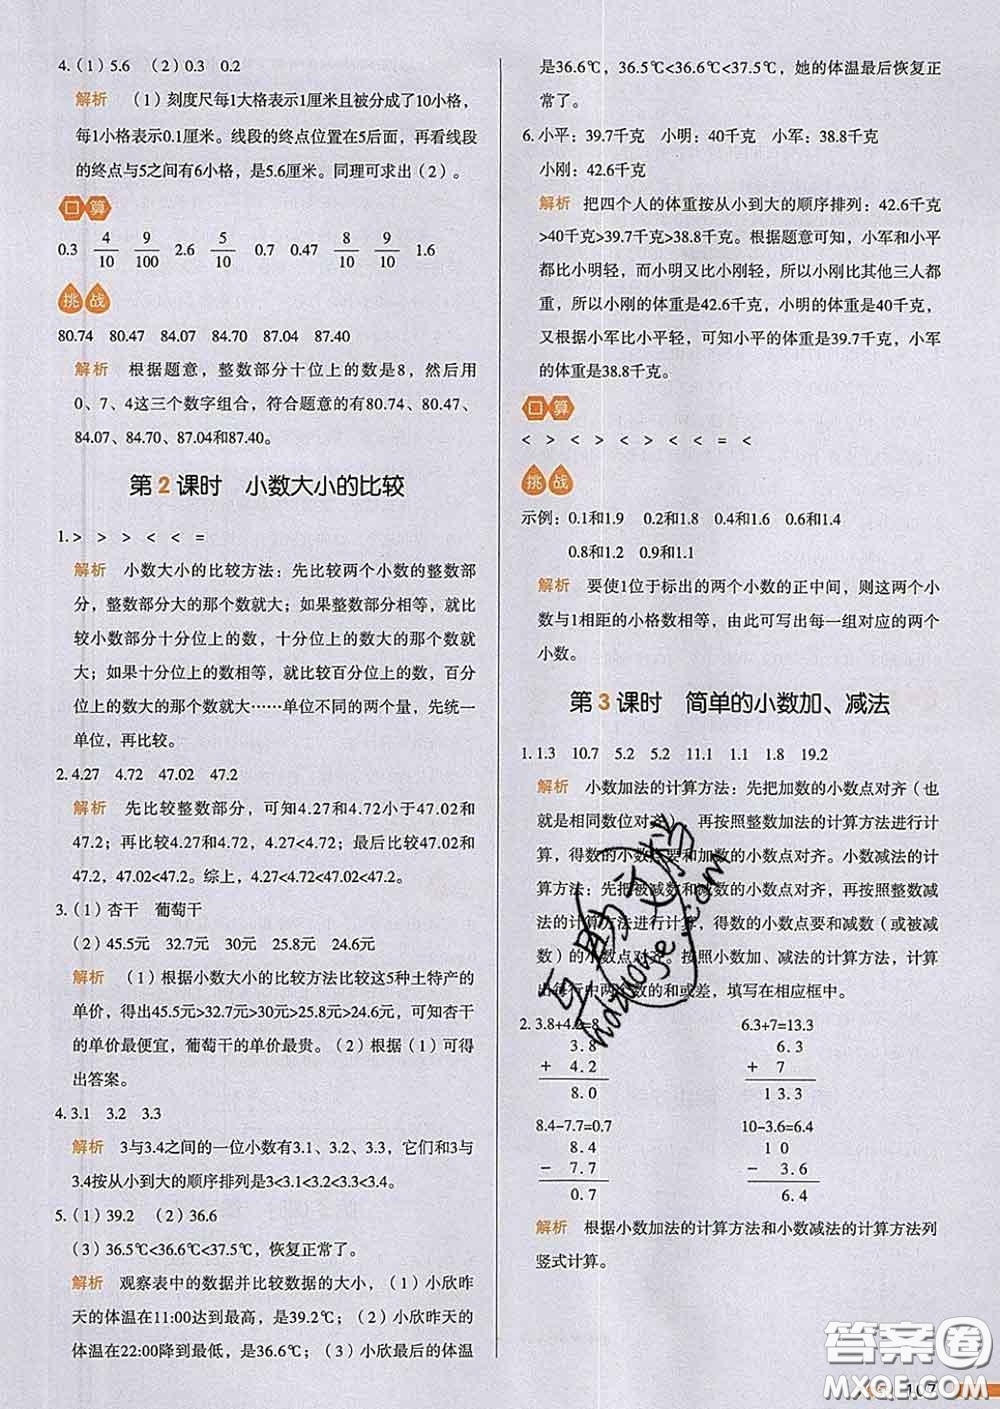 4.(1)5.6 (2)0.3 0.2
解析 (1)刻度尺每1大格表示1厘米且被分成了10小格，
每1小格表示0.1厘米。线段的终点位置在5后面，再看线段
的终点与5之间有6小格，是5.6厘米。同理可求出(2)。
口算
0.3 4/10 9/100 2.6 5/10 0.7 0.47 8/10 9/10 1.6
挑战
80.74 80.47 84.07 84.70 87.04 87.40
解析 根据题意，整数部分十位上的数是8，然后用
0、7、4这三个数字组合，符合题意的有80.74、80.47、
84.07、84.70、87.04和87.40。
第2课时 小数大小的比较
1.> > > < < =
解析 小数大小的比较方法：先比较两个小数的整数部
分，整数部分大的那个数就大；如果整数部分相等，就比
较小数部分十分位上的数，十分位上的数大的那个数就
大；如果十分位上的数相等，就比较百分位上的数，百分
位上的数大的那个数就大……单位不同的两个量，先统一
单位，再比较。
2.4.27 4.72 47.02 47.2
解析 先比较整数部分，可知4.27和4.72小于47.02和
47.2；再比较4.27和4.72，4.27<4.72；最后比较47.02和
47.2，47.02<47.2。综上，4.27<4.72<47.02<47.2。
3.(1)杏干 葡萄干
(2)45.5元 32.7元 30元 25.8元 24.6元
解析 (1)根据小数大小的比较方法比较这5种土特产的
单价，得出45.5元>32.7元>30元>25.8元>24.6元，可知杏干
的单价最便宜，葡萄干的单价最贵。(2)根据(1)可得
出答案。
4.3.1 3.2 3.3
解析 3与3.4之间的一位小数有3.1、3.2、3.3，它们和3与
3.4按从小到大的顺序排列是3<3.1<3.2<3.3<3.4。
5.(1)39.2 (2)36.6
(3)36.5℃<36.6℃<37.5℃，恢复正常了。
解析 观察表中的数据并比较数据的大小，(1)小欣昨
天的体温在11:00达到最高，是39.2℃；(2)小欣昨天的
体温在22:00降到最低，是36.6℃；(3)小欣最后的体温
是36.6℃，36.5℃<36.6℃<37.5℃，她的体温最后恢复正
常了。
6.小平：39.7千克 小明：40千克 小军：38.8千克
小刚：42.6千克
解析 把四个人的体重按从小到大的顺序排列：42.6千克
>40千克>39.7千克>38.8千克。根据题意可知，小军和小平
都比小明轻，而小明又比小刚轻，所以小刚比其他三人都
重，所以小刚的体重是42.6千克，小明的体重是40千克，
又根据小军比小平轻，可知小平的体重是39.7千克，小军
的体重是38.8千克。
口算
< > < > < > < < = <
挑战
示例：0.1和1.9 0.2和1.8 0.4和1.6 0.6和1.4
0.8和1.2 0.9和1.1
解析 要使1位于标出的两个小数的正中间，则这两个小
数与1相距的小格数相等，由此可写出每一组对应的两个
小数。
第3课时 简单的小数加、减法
1.1.3 10.7 5.2 5.2 11.1 1.1 1.8 19.2
解析 小数加法的计算方法：先把加数的小数点对齐(也
就是相同数位对齐)，再按照整数加法的计算方法进行计
算，得数的小数点要和加数的小数点对齐。小数减法的计
算方法：先把被减数和减数的小数点对齐，再按照整数减
法的计算方法进行计算，得数的小数点要和减数(或被减
数)的小数点对齐。按照小数加、减法的计算方法，计算
出每行中两个数的和或差，填写在相应框中。
2.3.8+4.2=8 6.3+7=13.3
3.8 6.3
+ 4.2 + 7
8.0 13.3
8.4-7.7=0.7 10-3.6=6.4
8.4 10
- 7.7 - 3.6
0.7 6.4
解析 根据小数加法的计算方法和小数减法的计算方法列
竖式计算。
答案圈
MXQE.COM
107